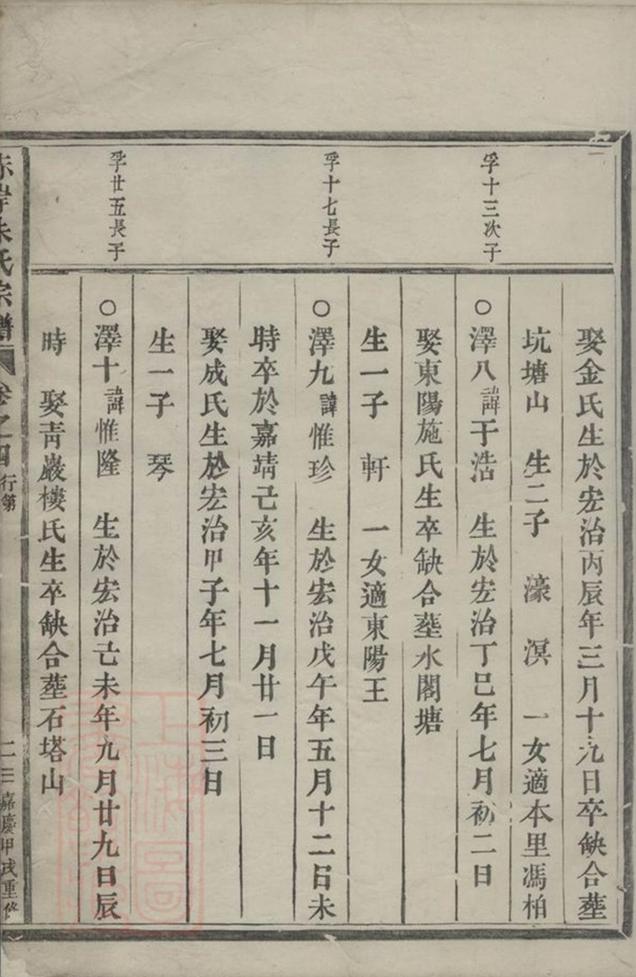 娶金氏生於宏治丙辰年三月十九日卒缺合塟
坑塘山 生二子 濠 溟 一女適本里馮柏
孚十三次子
○澤八諱于浩 生於宏治丁巳年七月初二日
娶東陽施氏生卒缺合塟水閣塘
生一子 軒 一女適東陽王
孚十七長子
○澤九諱惟珍 生於宏治戊午年五月十二日未
時卒於嘉靖己亥年十一月廿一日
娶成氏生於宏治甲子年七月初三日
生一子 琴
孚廿五長子
○澤十諱惟隆 生於宏治己未年九月廿九日辰
時 娶青巖樓氏生卒缺合塟石塔山
赤岸朱氏宗譜 卷之四 行第 二三 嘉慶甲戌重修